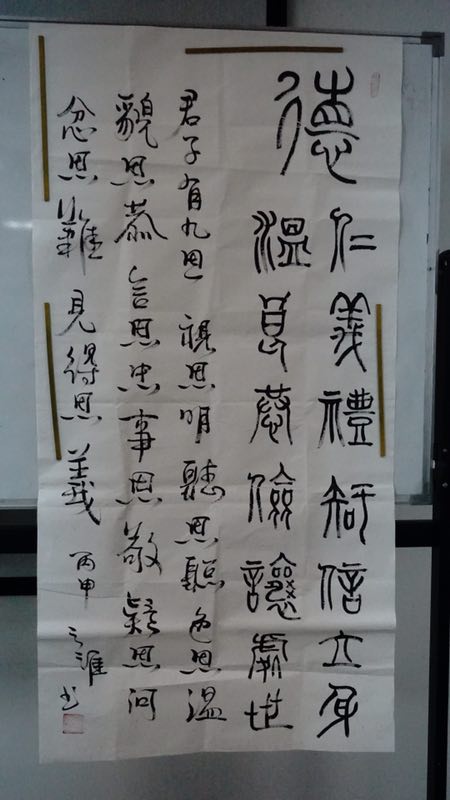 德
仁義禮智信立身
溫良恭儉讓處世
君子有九思視思明聽思聰色思溫
貌思恭言思忠事思敬疑思问
忿思難見得思義
丙申
书